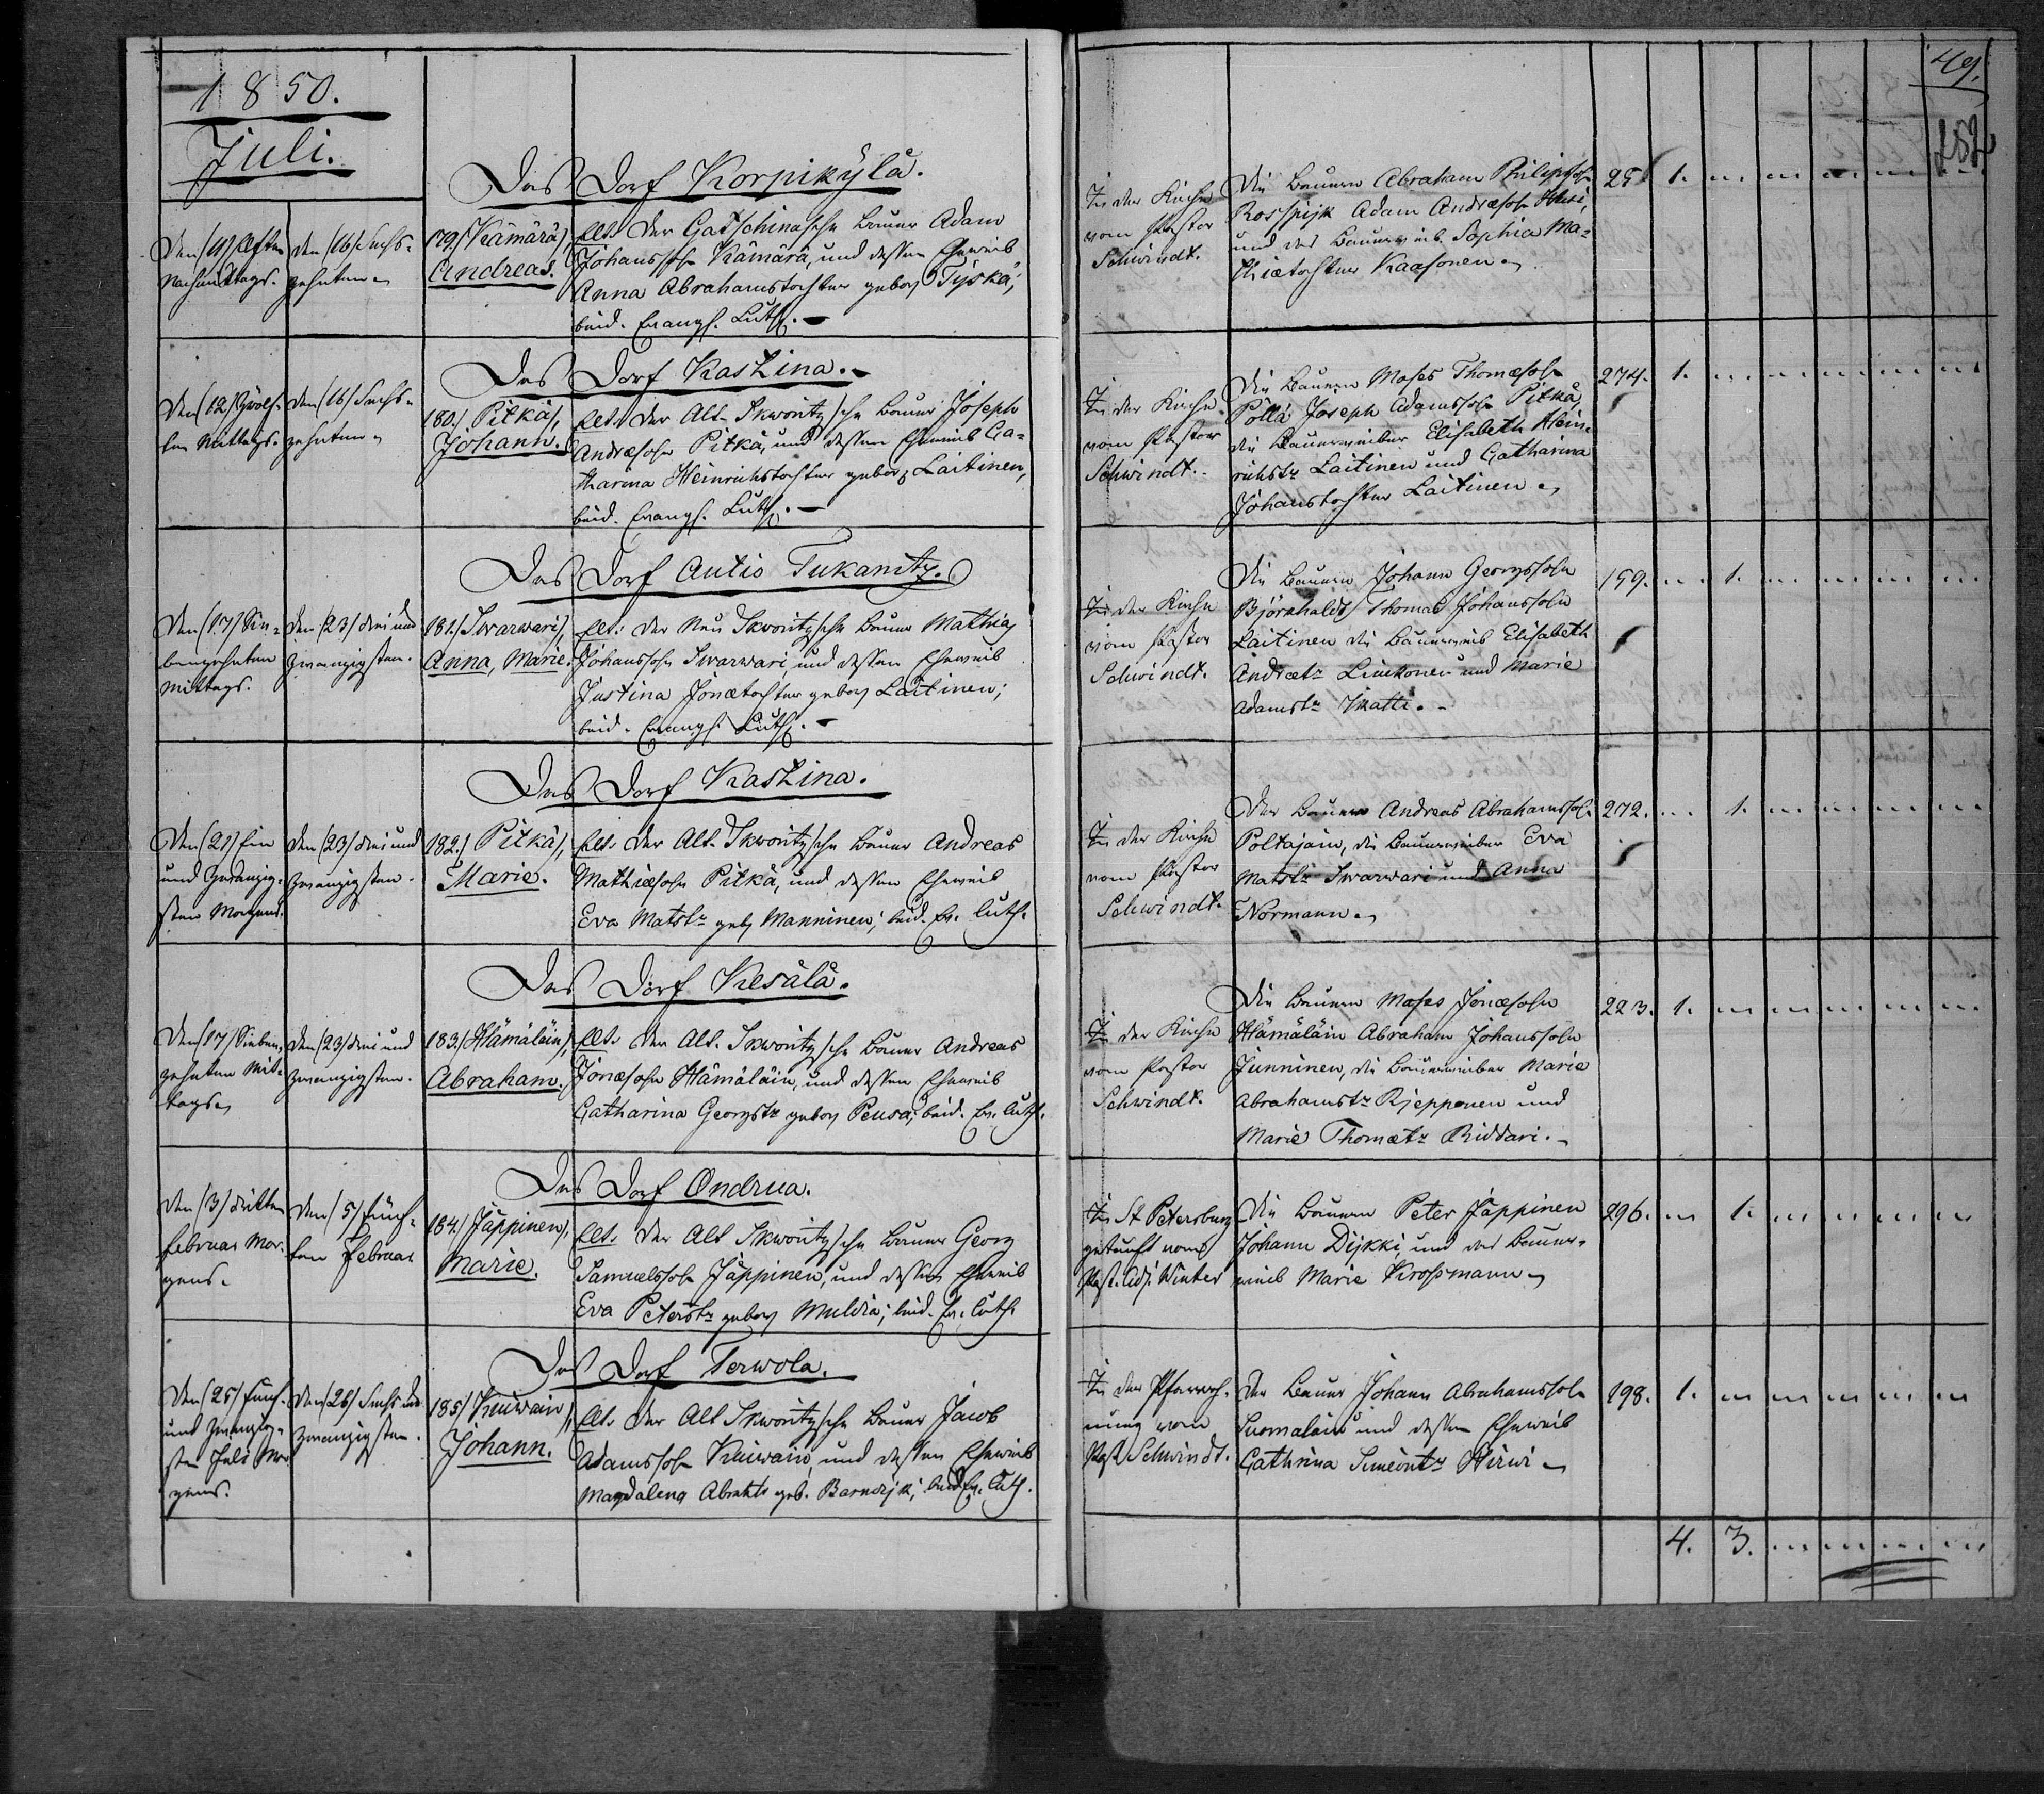 1850.
Juli.
49.
252
Das Dorf Korpikylä.
Den (11) Elften
Nachmittags.
Den (16) Sechs-
zehnten
179.) Kämärä),
Andreas.
Elt. Der Gatschinasche Bauer Adam
Johannssohn Kämärä, und dessen Eheweib
Anna Abrahamstochter gebor. Tyskä,
beid. Evangl. Luth. –
In der Kirche
vom Pastor
Schwindt.
Die Bauern Abraham Philipssohn
Rosspijk Adam Andreæsohn
und das Bauerweib Sophia Ma-
thiætochter Kaasonen
25
1.
Das Dorf Kaskina. –
Den (12) Zwölf-
ten Mittags.
Den (16) Sechs-
zehnten
180.) Pitkä),
Johann.
Elt. Der Alt-Skworitzsche Bauer Joseph
Andreæsohn Pitkä, und dessen Eheweib Ca-
tharina Heinrichstochter gebor. Laitinen,
beid. Evangl. Luth. –
In der Kirche
vom Pastor
Schwindt.
Die Bauern Moses Thomæsohn
Pöllä Joseph Adamssohn Pitkä,
die Bauerweiber Elisabeth Hein-
richstr Laitinen und Catharina
Johanstochter Laitinen
274.
1.
Das Dorf Autio Tukanitz.
Den (17) Sie-
benzehnten
Mittags.
Den (23) drei und
zwanzigsten.
181.) Swarwari),
Anna, Marie.
Elt. Der Neu Skworitzsche Bauer Mathias
Johannssohn Swarwari und dessen Eheweib
Justina Jonætochter gebor. Laitinen;
beid. Evangl. Luth. –
In der Kirche
vom Pastor
Schwindt.
Die Bauern Johann Georgssohn
Björnhaldt Thomas Johanssohn
Laitinen die Bauerweib Elisabeth
Andrætr Linckonen und Marie
Adamstr Matti. –
159.
1.
Das Dorf Kaskina.
Den (21) Ein
und Zwanzig-
sten Morgens.
Den (23) drei und
zwanzigsten.
182.) Pitkä),
Marie.
Elt. Der Alt-Skworitzsche Bauer Andreas
Mathiæsohn Pitkä, und dessen Eheweib
Eva Matstr geb. Manninen; beid. Ev. Luth.
In der Kirche
vom Pastor
Schwindt.
Der Bauer Andreas Abrahamssohn
Poltajain, die Bauerweiber Eva
Matstr Swarwari und Anna
Normann.
272.
1.
Das Dorf Kesälä.
Den (17) Sieben-
zehnten Mit-
tags.
Den (23) drei und
zwanzigsten.
183.) Hämäläin),
Abraham.
Elt. Der Alt-Skworitzsche Bauer Andreas
Jonæsohn Hämäläin, und dessen Eheweib
Catharina Georgstr gebor. Peusa; beid. Ev. Luth.
In der Kirche
vom Pastor
Schwindt.
Die Bauern Moses Jonæsohn
Hämäläin Abraham Johanssohn
Junninen, die Bauerweiber Marie
Abrahamstr Rjepponen und
Marie Thomætr Riddari. –
223.
1.
Das Dorf Ondrua.
Den (3) dritten
Februar Mor-
gens.
Den (5) fünf-
ten Februar
184.) Jäppinen),
Marie.
Elt. Der Alt Skworitzsche Bauer Georg
Samuelssohn Jäppinen, und dessen Eheweib
Eva Peterstr gebor. Muldia; beid. Ev. Luth.
In St Petersburg
getauft vom
Past. Adj. Winter
Die Bauern Peter Jäppinen
Johann Dijkki, und das Bauer-
weib Marie Krossmann
296.
1.
Das Dorf Terwola.
Den (25) fünf-
und zwanzig-
sten Juli Mor-
gens.
Den (26) Sechs und
zwanzigsten.
185) Kuiwain),
Johann.
Elt. Der Alt Skworitzsche Bauer Jacob
Adamssohn Kuiwain, und dessen Eheweib
Magdalena geb. Barndijk; beid. Ev. Luth.
In der
vom
Past. Schwindt.
Der Bauer Johann Abrahamssohn
Suomaläin und dessen Eheweib
Cathrina Simeontr Hirwi –
198.
1.
4. 3.